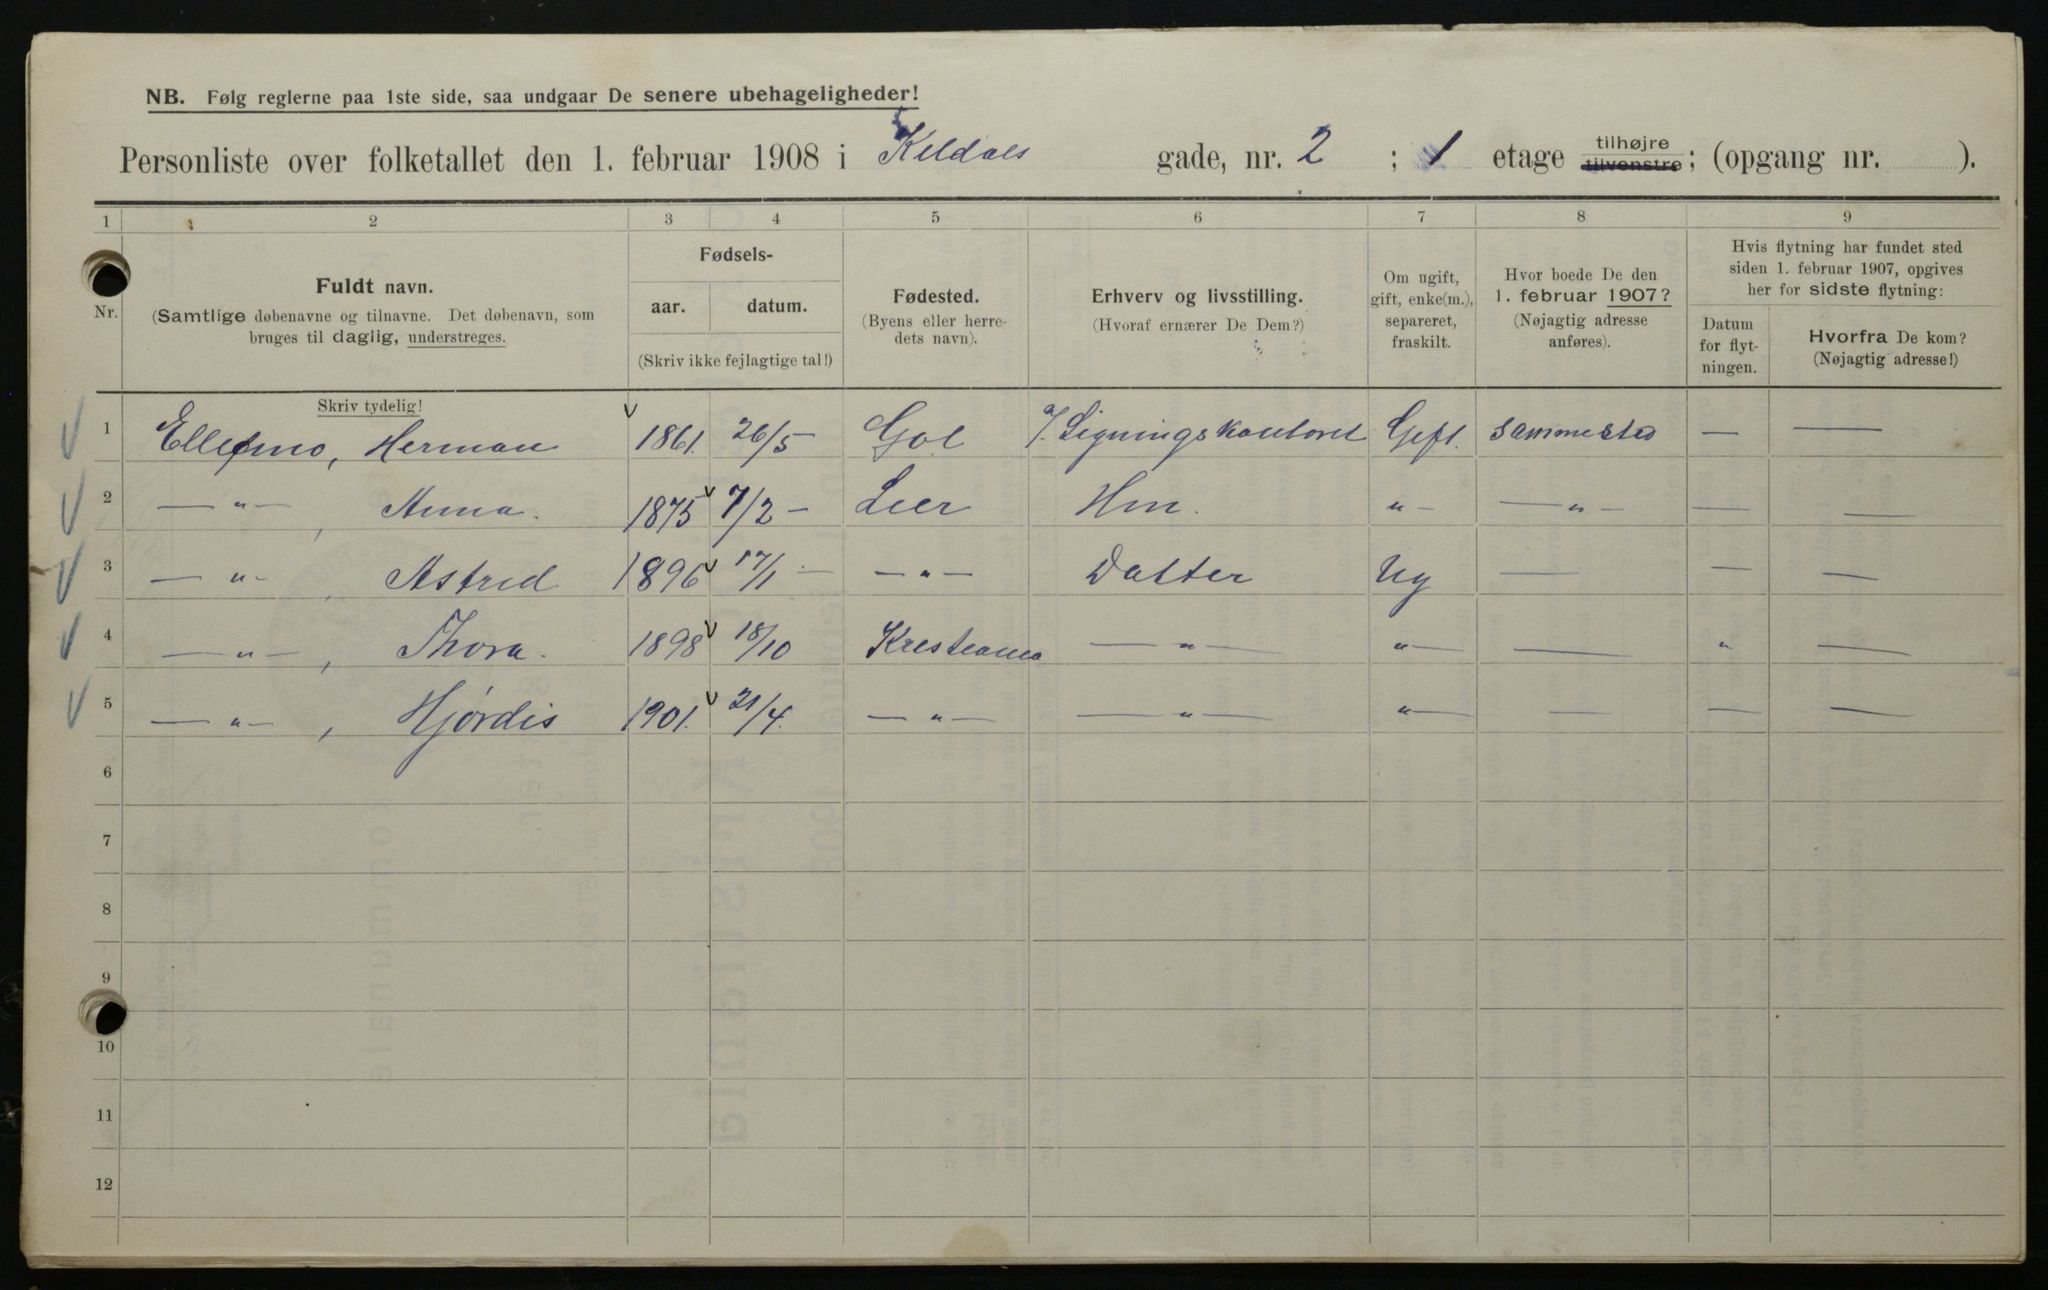 NB. Følg reglerne paa 1ste side, saa undgaar De senere ubehageligheder!
Personliste over folketallet den 1. februar 1908 i Keldals gade, nr. 2 ; 1 etage tilhøjre tilvenstre; (opgang nr. ).
1 2 3 4 5 6 7 8 9
Nr.
Fuldt navn.
(Samtlige døbenavne og tilnavne. Det døbenavn, som
bruges til daglig, understreges.
Skriv tydelig!
Fødsels-
aar. datum.
(Skriv ikke fejlagtige tal!)
Fødested.
(Byens eller herre-
dets navn).
Erhverv og livsstilling.
(Hvoraf ernærer De Dem?)
Om ugift,
gift, enke(m.),
separeret,
fraskilt.
Hvor boede De den
1. februar 1907?
(Nøjagtig adresse
anføres).
Hvis flytning har fundet sted
siden 1. februar 1907, opgives
her for sidste flytning:
Datum
for flyt-
ningen.
Hvorfra De kom?
(Nøjagtig adresse!)
1 Ellefmo, Herman 1861. 26/5 – Gol Ligningskontoret Gift. sammested — —
2 — " — , Anna. 1875 7/2 – Lier Hm. " – — " – — —
3 — " – , Astrid 1896 17/1 – — " — Datter Ug — — —
4 — " — , Thora. 1898 18/10 Kristiania — " — " — — " —
5 — " — , Hjørdis 1901. 21/4. — " — — " — " — — — —
6
7
8
9
10
11
12